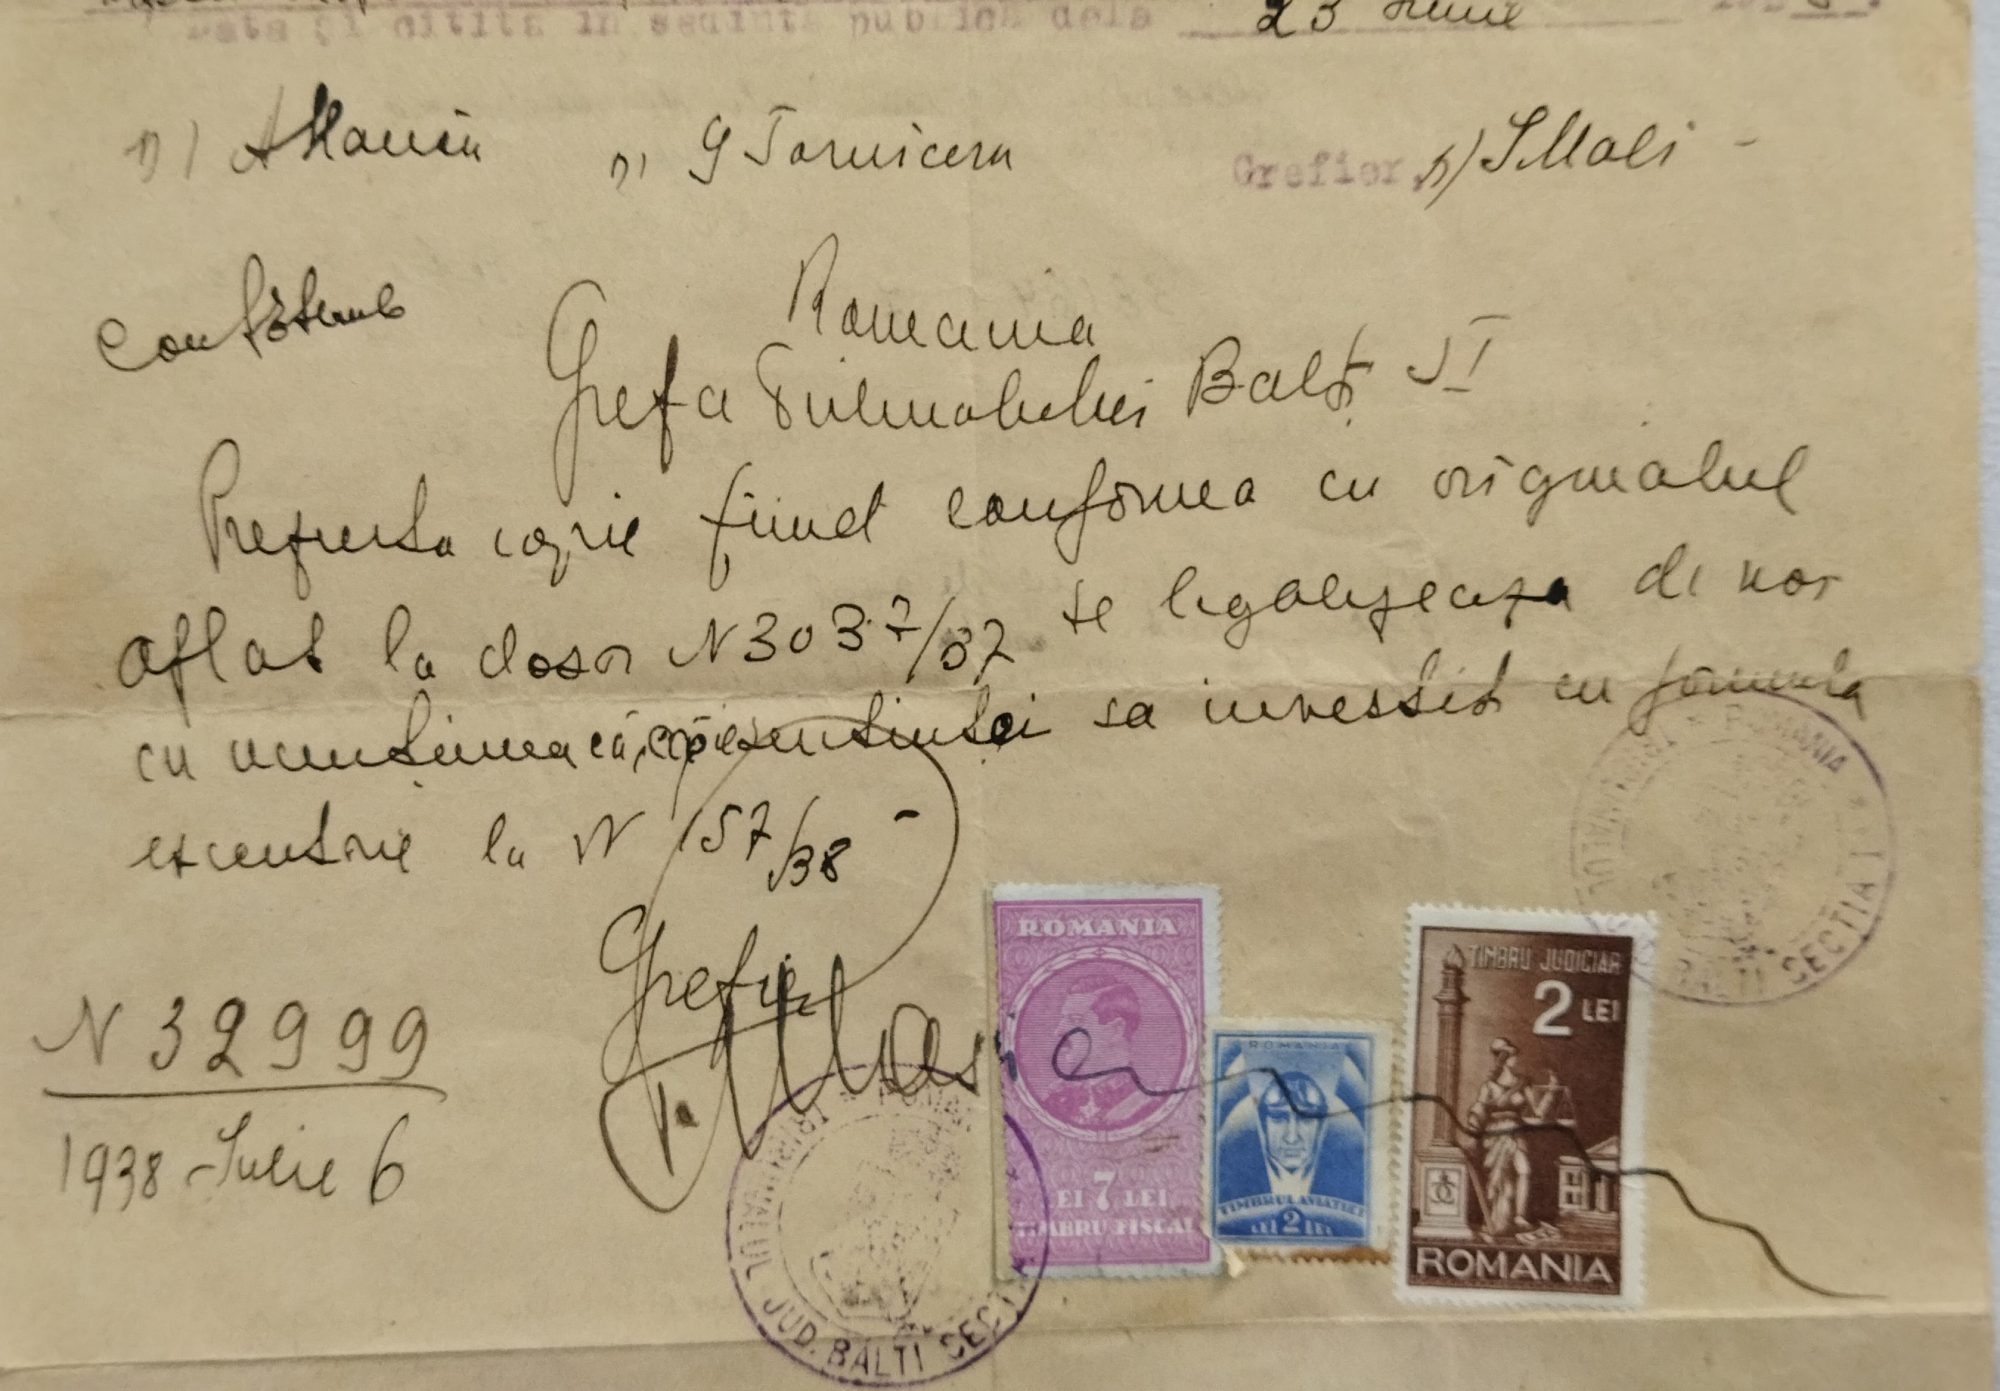 Data și citită în sedința publică dela 23 Iunie
n) n) G Torniceru Grefier, n)
România
Grefa Tribunalului Balți S I
Prezenta copie fiind conforma cu originalul
aflat la dosar N 3037/37 se legalizeaza de noi
cu mentiunea că copie sentintei sa investit cu formula
executorie la N 157/38 -
Grefier
N 32999
1938 Iulie 6
ROMANIA
LEI 7 LEI
TIMBRU FISCAL
ROMANIA
TIMBRUL AVIATIEI
LEI 2 LEI
TIMBRU JUDICIAR
2 LEI
ROMANIA
ROMANIA * TRIBUNALUL JUD. BĂLȚI SECȚIA I
TRIBUNALUL JUD. BĂLȚI SECȚIA